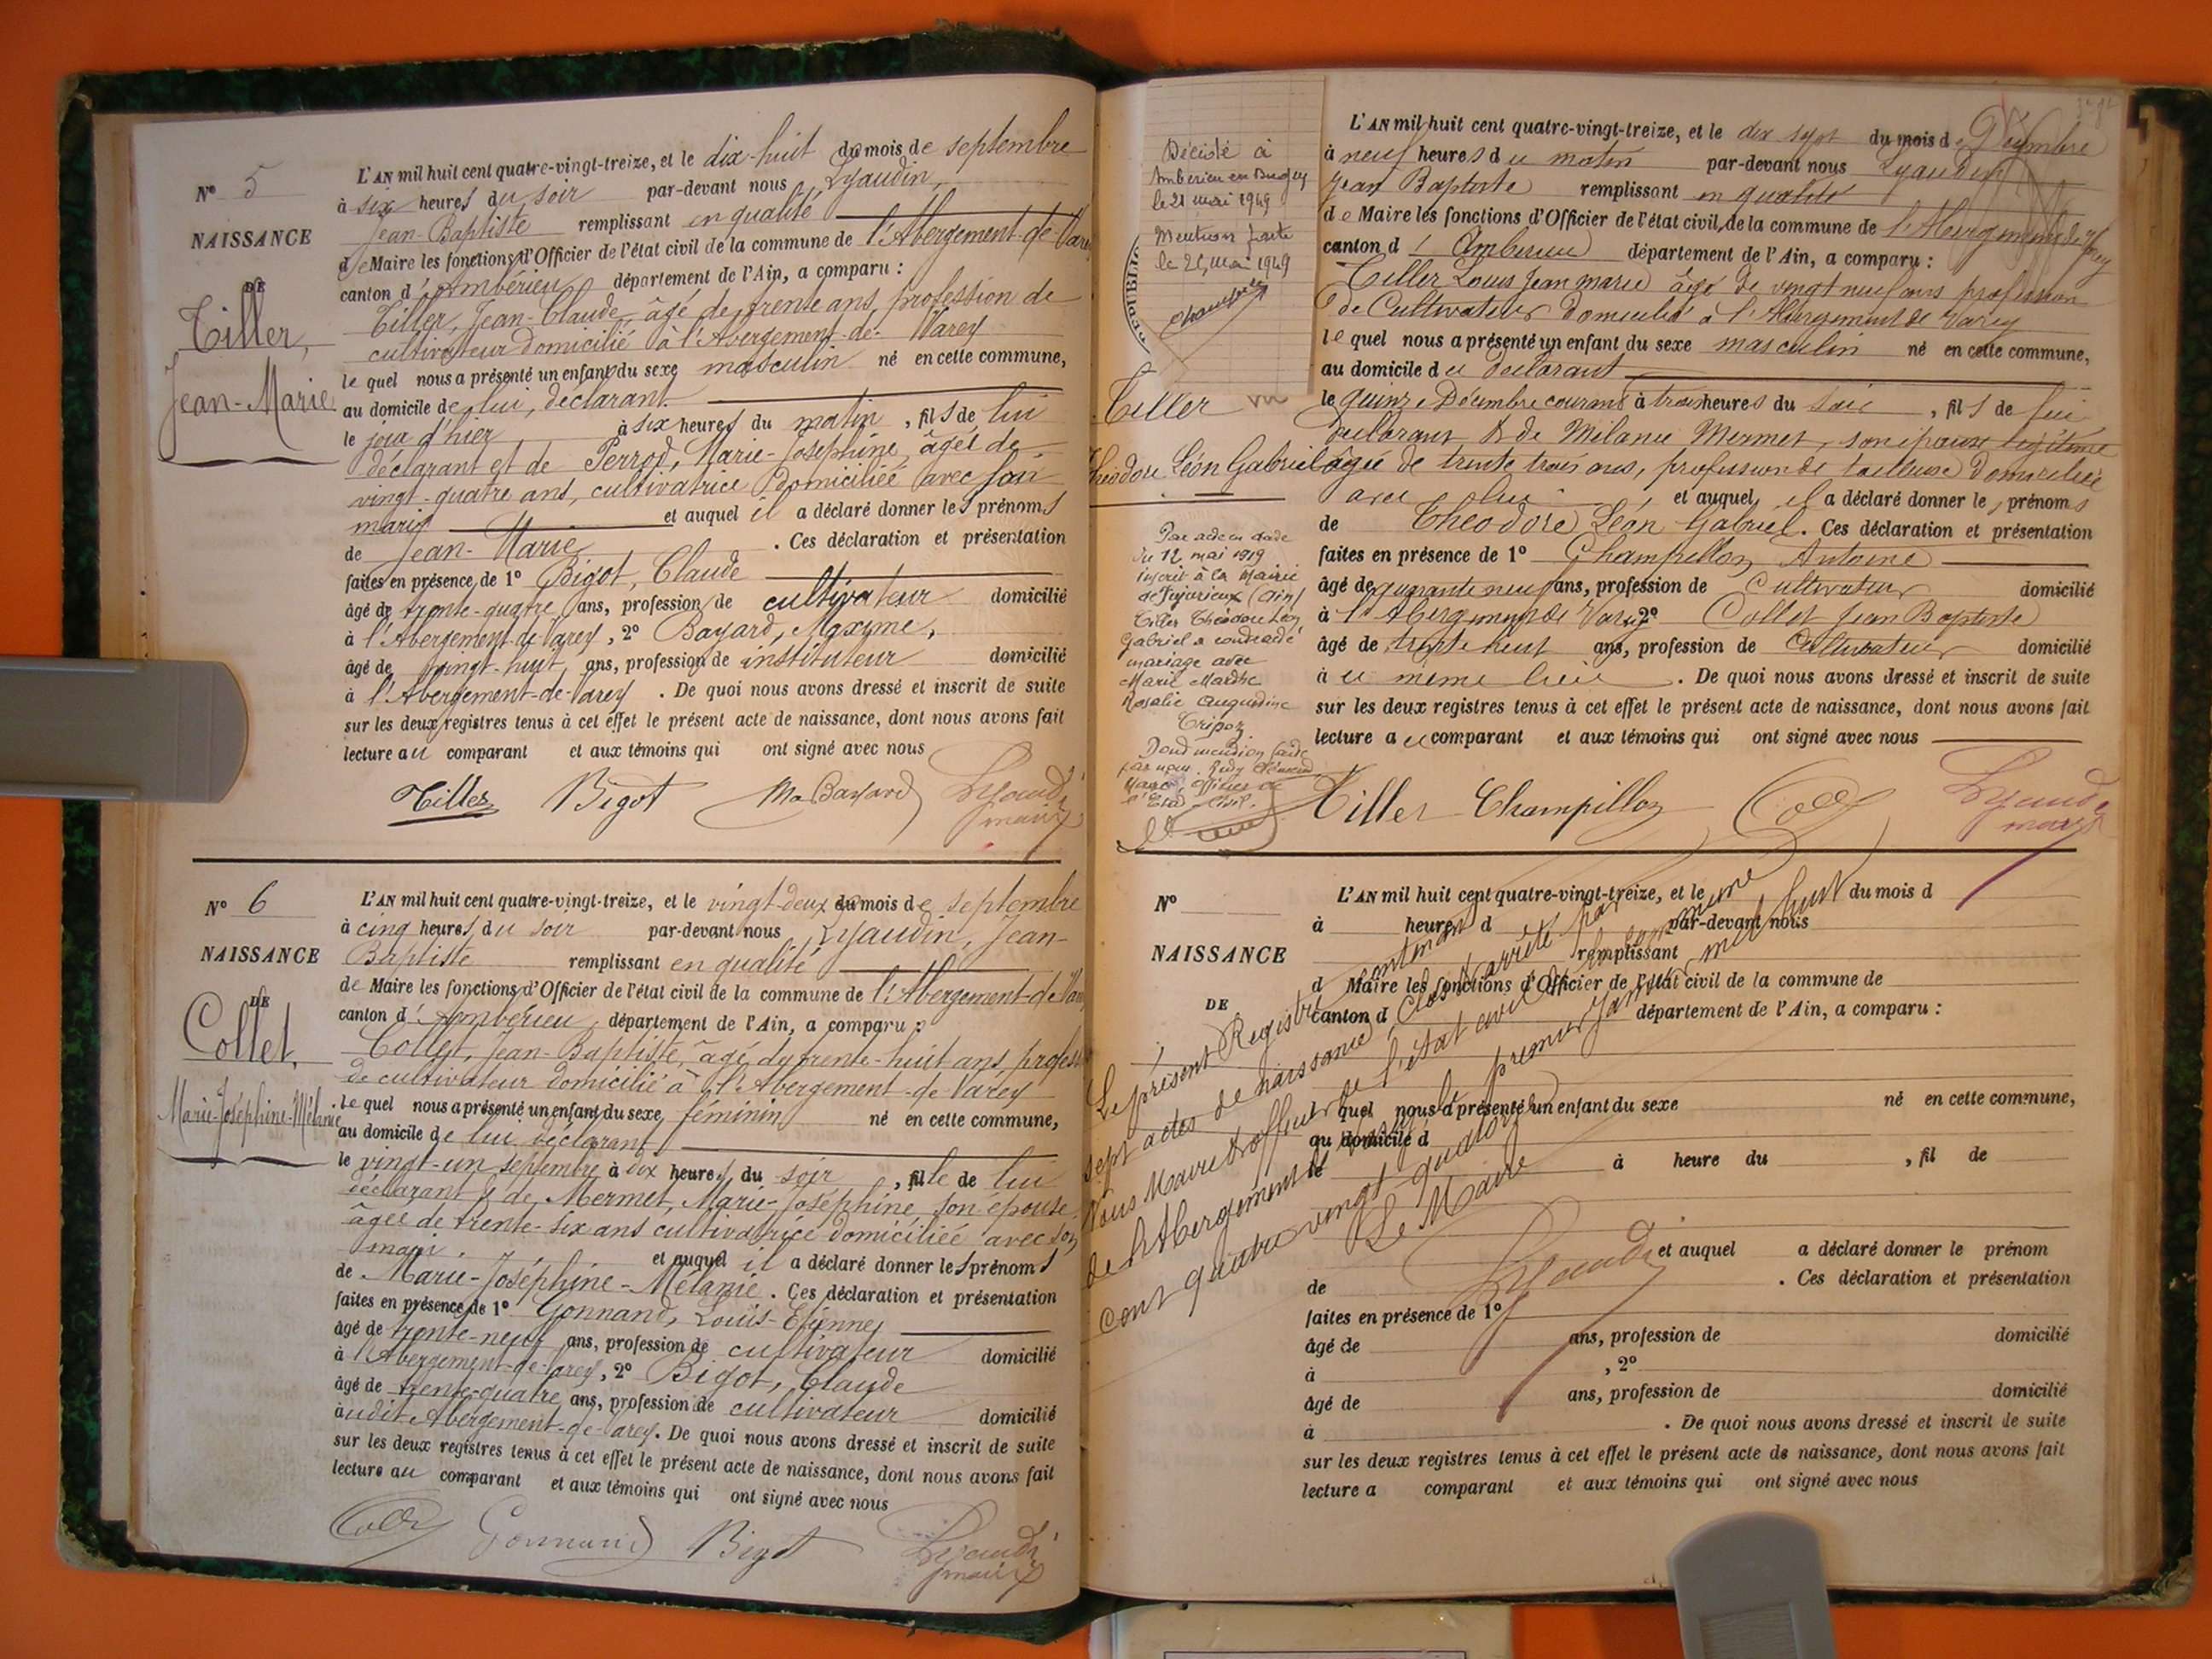 N° 5
NAISSANCE
DE
Tiller,
Jean-Marie
L'AN mil huit cent quatre-vingt-treize, et le dix-huit du mois de septembre
à six heures du soir par-devant nous Lyaudin,
Jean-Baptiste remplissant en qualité
de Maire les fonctions d'Officier de l'état civil de la commune de l'Abergement-de-Varey
canton d'Ambérieu département de l'Ain, a comparu :
Tiller, Jean-Claude, âgé de trente ans, profession de
cultivateur domicilié à l'Abergement-de-Varey
lequel nous a présenté un enfant du sexe masculin né en cette commune,
au domicile de lui, déclarant
le jour d'hier à six heures du matin, fils de lui
déclarant et de Perrod, Marie-Joséphine, âgée de
vingt-quatre ans, cultivatrice domiciliée avec son
mari et auquel il a déclaré donner les prénoms
de Jean-Marie . Ces déclaration et présentation
faites en présence de 1° Bigot, Claude
âgé de trente-quatre ans, profession de cultivateur domicilié
à l'Abergement-de-Varey, 2° Bayard, Maxime,
âgé de vingt-huit ans, profession de instituteur domicilié
à l'Abergement-de-Varey . De quoi nous avons dressé et inscrit de suite
sur les deux registres tenus à cet effet le présent acte de naissance, dont nous avons fait
lecture au comparant et aux témoins qui ont signé avec nous
Tiller Bigot Ma Bayard Lyaudin
maire
N° 6
NAISSANCE
DE
Collet,
Marie-Joséphine-Mélanie
L'AN mil huit cent quatre-vingt-treize, et le vingt-deux du mois de septembre
à cinq heures du soir par-devant nous Lyaudin, Jean-
Baptiste remplissant en qualité
de Maire les fonctions d'Officier de l'état civil de la commune de l'Abergement-de-Varey
canton d'Ambérieu, département de l'Ain, a comparu :
Collet, Jean-Baptiste, âgé de trente-huit ans, profession
de cultivateur domicilié à l'Abergement-de-Varey
lequel nous a présenté un enfant du sexe féminin né en cette commune,
au domicile de lui déclarant
le vingt-un septembre à dix heures du soir, fille de lui
déclarant & de Mermet, Marie-Joséphine son épouse
âgée de trente-six ans cultivatrice domiciliée avec son
mari. et auquel il a déclaré donner les prénoms
de Marie-Joséphine-Mélanie . Ces déclaration et présentation
faites en présence de 1° Gonnand, Louis-Etienne
âgé de trente-neuf ans, profession de cultivateur domicilié
à l'Abergement-de-Varey, 2° Bigot, Claude
âgé de trente-quatre ans, profession de cultivateur domicilié
audit Abergement-de-Varey. De quoi nous avons dressé et inscrit de suite
sur les deux registres tenus à cet effet le présent acte de naissance, dont nous avons fait
lecture au comparant et aux témoins qui ont signé avec nous
Collet Gonnand Bigot Lyaudin
maire
Décédé à
Ambérieu en Bugey
le 21 mai 1949
Mention faite
le 21 mai 1949
Tiller
Théodore Léon Gabriel
Par acte en date
du 12 mai 1919
inscrit à la Mairie
de Jujurieux (Ain)
Tiller Théodore Léon
Gabriel a contracté
mariage avec
Marie Marthe
Rosalie Augustine
Tripoz
Dont mention faite
par nous
Maire, officier de
l'Etat-Civil.
L'AN mil huit cent quatre-vingt-treize, et le dix sept du mois de Décembre
à neuf heures du matin par-devant nous Lyaudin
Jean Baptiste remplissant en qualité
de Maire les fonctions d'Officier de l'état civil de la commune de l'Abergement de Varey
canton d'Ambérieu département de l'Ain, a comparu :
Tiller Louis Jean Marie âgé de vingt neuf ans profession
de Cultivateur domicilié à l'Abergement de Varey
lequel nous a présenté un enfant du sexe masculin né en cette commune,
au domicile du déclarant
le quinze Décembre courant à trois heures du soir, fils de lui
déclarant & de Mélanie Mermet, son épouse légitime
âgée de trente trois ans, profession de tailleuse domiciliée
avec lui et auquel il a déclaré donner les prénoms
de Théodore Léon Gabriel. Ces déclaration et présentation
faites en présence de 1° Champillon Antoine
âgé de quarante neuf ans, profession de Cultivateur domicilié
à l'Abergement de Varey 2° Collet Jean Baptiste
âgé de trente huit ans, profession de Cultivateur domicilié
à ce même lieu . De quoi nous avons dressé et inscrit de suite
sur les deux registres tenus à cet effet le présent acte de naissance, dont nous avons fait
lecture au comparant et aux témoins qui ont signé avec nous
Tiller Champillon Collet Lyaudin
maire
N°
NAISSANCE
DE
L'AN mil huit cent quatre-vingt-treize, et le du mois d
à heures d par-devant nous
remplissant
d Maire les fonctions d'Officier de l'état civil de la commune de
canton d département de l'Ain, a comparu :
l quel nous a présenté un enfant du sexe né en cette commune,
au domicile d
le à heure du , fil de
et auquel a déclaré donner le prénom
de . Ces déclaration et présentation
faites en présence de 1°
âgé de ans, profession de domicilié
à , 2°
âgé de ans, profession de domicilié
à . De quoi nous avons dressé et inscrit de suite
sur les deux registres tenus à cet effet le présent acte de naissance, dont nous avons fait
lecture a comparant et aux témoins qui ont signé avec nous
Le présent Registre contenant
sept actes de naissance Clos & arrêté par
Nous Maire & officier de l'état civil de la commune
de l'Abergement de Varey le premier Janvier mil huit
cent quatre vingt quatorze
Le Maire
Lyaudin